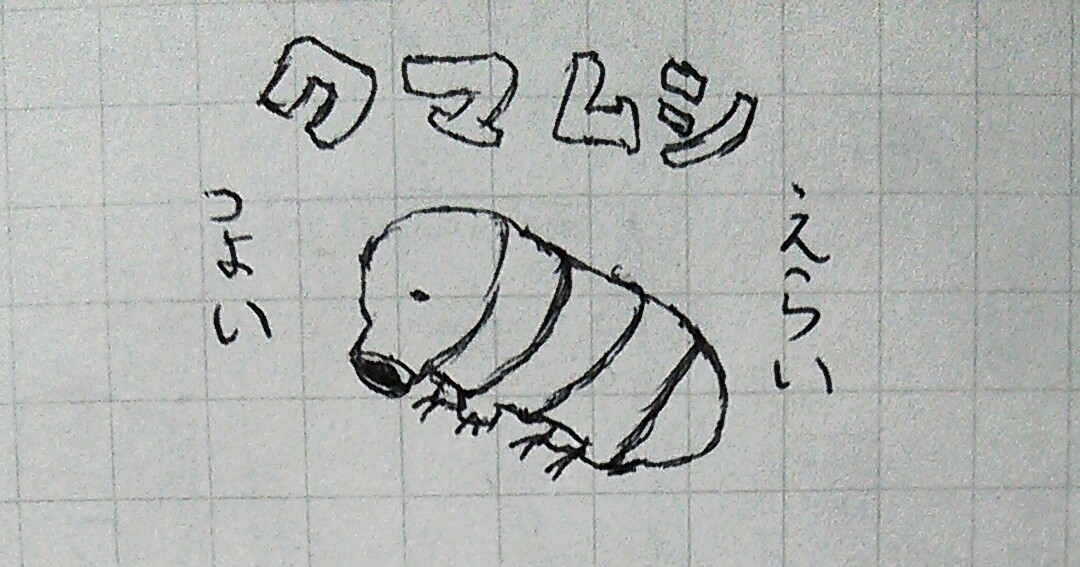 クマムシ
つよい
えらい